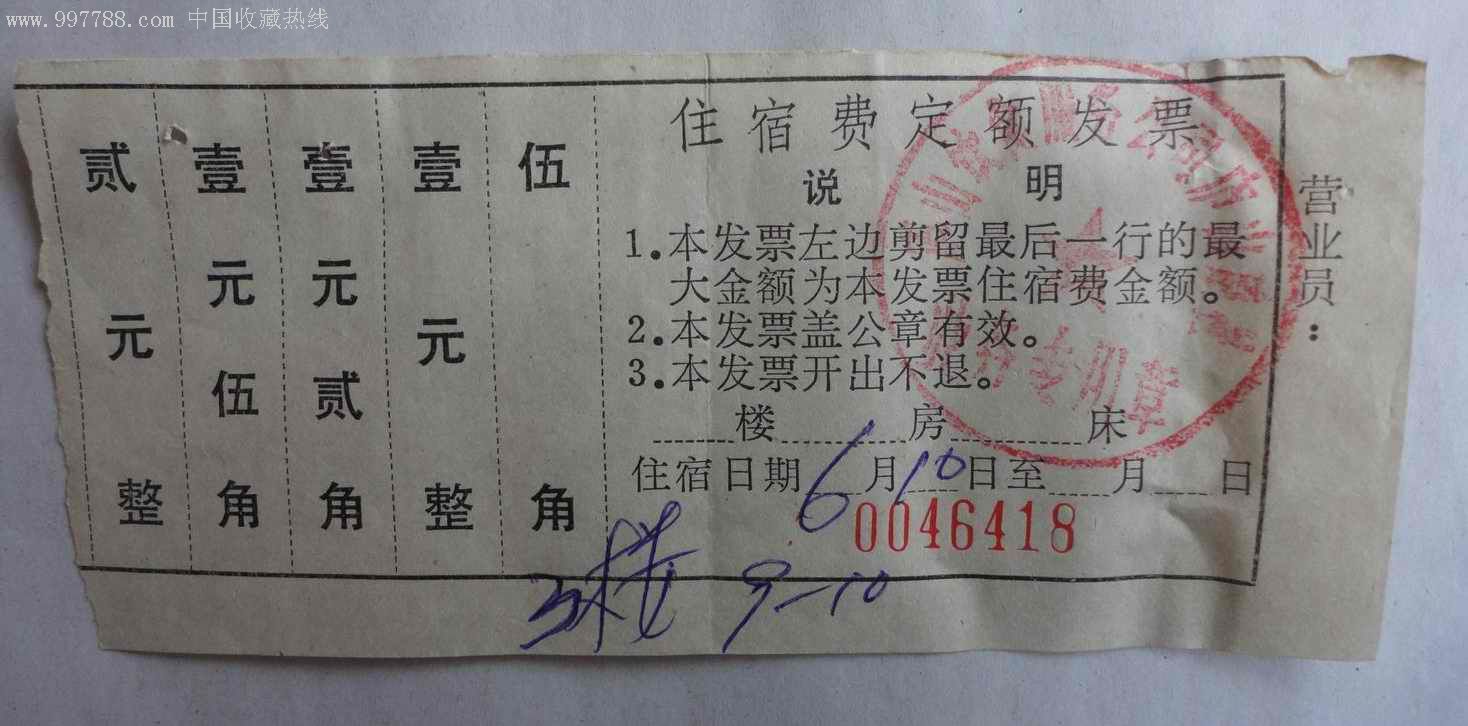 www.997788.com 中国收藏热线
贰元整
壹元伍角
壹元贰角
壹元整
伍角
住宿费定额发票
说明
1.本发票左边剪留最后一行的最
大金额为本发票住宿费金额。
2.本发票盖公章有效。
3.本发票开出不退。
楼 房 床
住宿日期 6 月 10 日至 月 日
0046418
3楼 9-10
营业员:
专用章